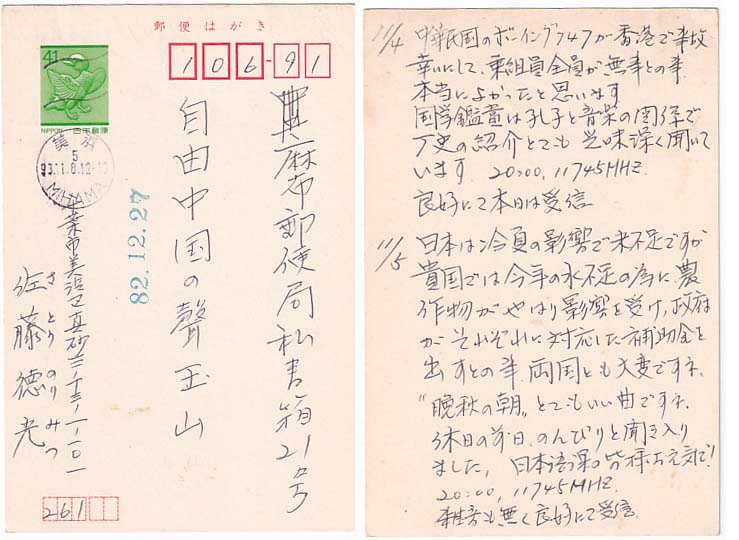 郵便はがき
41
NIPPON 日本郵便
106-91
美浜
5
93.11.6.12-18
MIHAMA
麻布郵便局私書箱21号
自由中国の聲玉山
82.12.27
千葉市美浜区真砂
佐藤徳光
さとう のりみつ
261
11/4 中華民国のボーイング747が香港で事故
幸いにして、乗組員全員が無事との事
本当によかったと思います
国学鑑賞は孔子と音楽の関係で
歴史の紹介とても興味深く聞いて
います 20:00, 11745MHZ.
良好にて本日は受信
11/5 日本は冷夏の影響で米不足ですが
貴国では今年の水不足の為に、農
作物がやはり影響を受け、政府
がそれぞれに対応した補助金を
出すとの事 両国とも大変ですネ
"晩秋の朝" とてもいい曲ですネ
休日の前日、のんびりと聞き入り
ました, 日本語課の皆様お元気で!
20:00, 11745MHZ.
雑音も無く良好にて受信